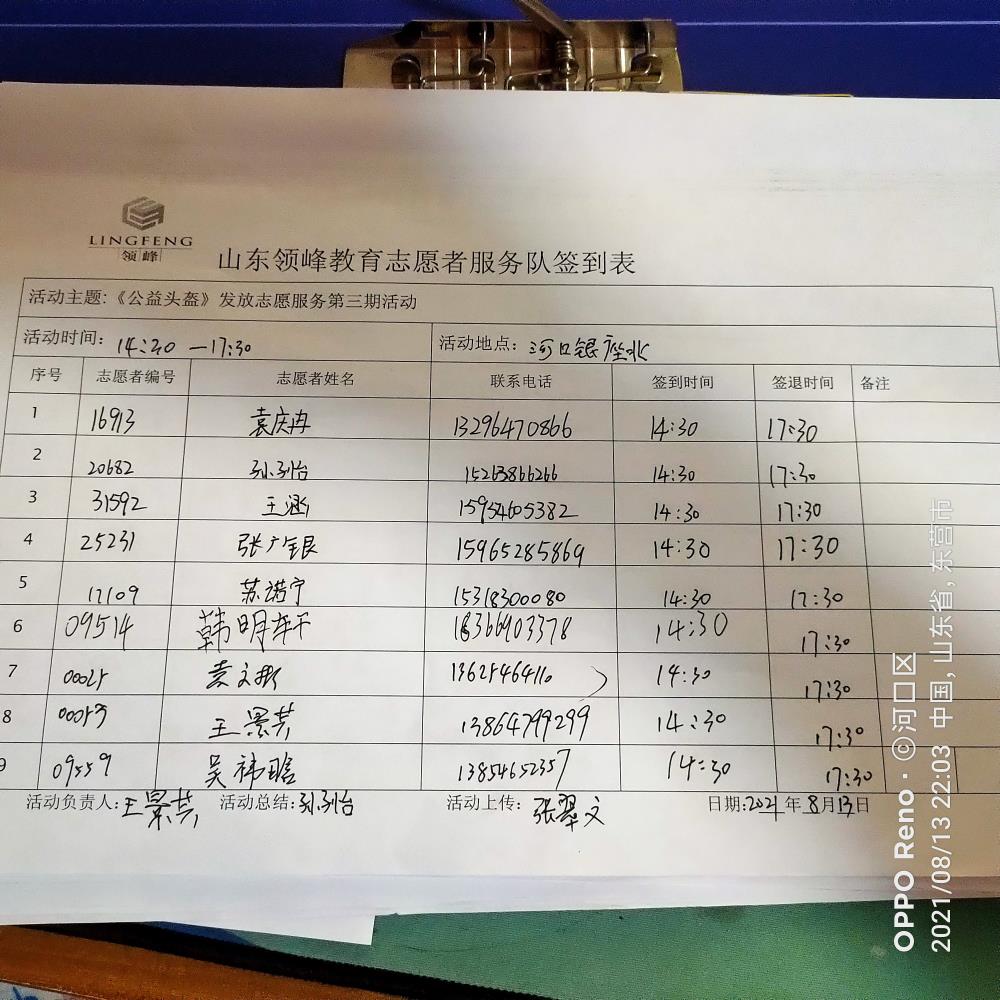 LINGFENG
领峰
山东领峰教育志愿者服务队签到表
活动主题:《公益头盔》发放志愿服务第三期活动
活动时间: 14:20 —17:30 活动地点: 河口银座北
序号 志愿者编号 志愿者姓名 联系电话 签到时间 签退时间 备注
1 16913 袁庆冉 13296470866 14:30 17:30
2 20682 15263866266 14:30 17:30
3 31592 王涵 15954605382 14:30 17:30
4 25231 张广银 15965285869 14:30 17:30
5 17109 苏诺宁 15318300080 14:30 17:30
6 09514 韩明轩 18366903378 14:30 17:30
7 00025 袁文彬 13625464110 14:30 17:30
8 王景芸 13864799299 14:30 17:30
9 09559 吴祎晗 13854652357 14:30 17:30
活动负责人:王景芸 活动总结: 活动上传: 张翠文 日期:2021年8月13日
OPPO Reno · ©河口区
2021/08/13 22:03 中国, 山东省, 东营市